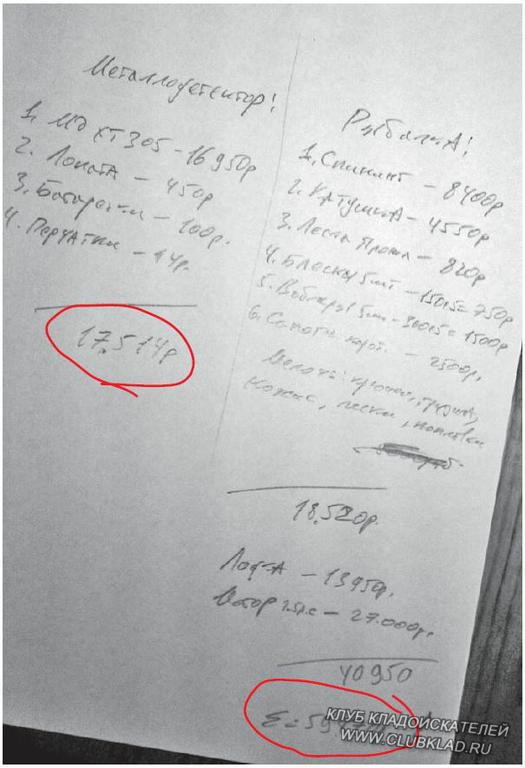 Металлодетектор!
1. МД ХТ 305 - 16950р
2. Лопата - 450р
3. Батарейки - 100р.
4. Перчатки - 14р.
17.514р
Рыбалка!
1. Спиннинг - 8400р
2. Катушка - 4550р
3. Леска - 820р
4. Блесны 5шт - 150х5=750р
5. Воблеры 5шт - 300х5=1500р
6. Сапоги - 2500р.
Мелочи: крючки, грузила,
лески, поплавки
18.520р.
Лодка - 13950р.
Мотор - 27.000р.
40950
КЛУБ КЛАДОИСКАТЕЛЕЙ
WWW.CLUBKLAD.RU